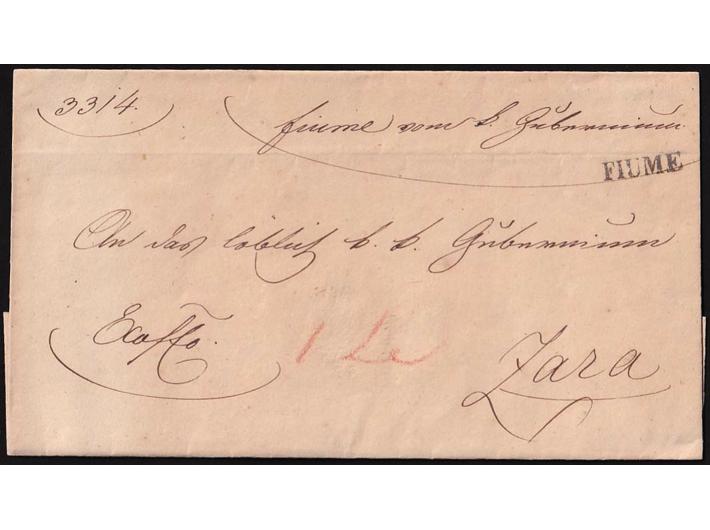 3314.
fiume vom k. Gubernium
FIUME
An das löblich k. k. Gubernium
Exoffo.
Zara